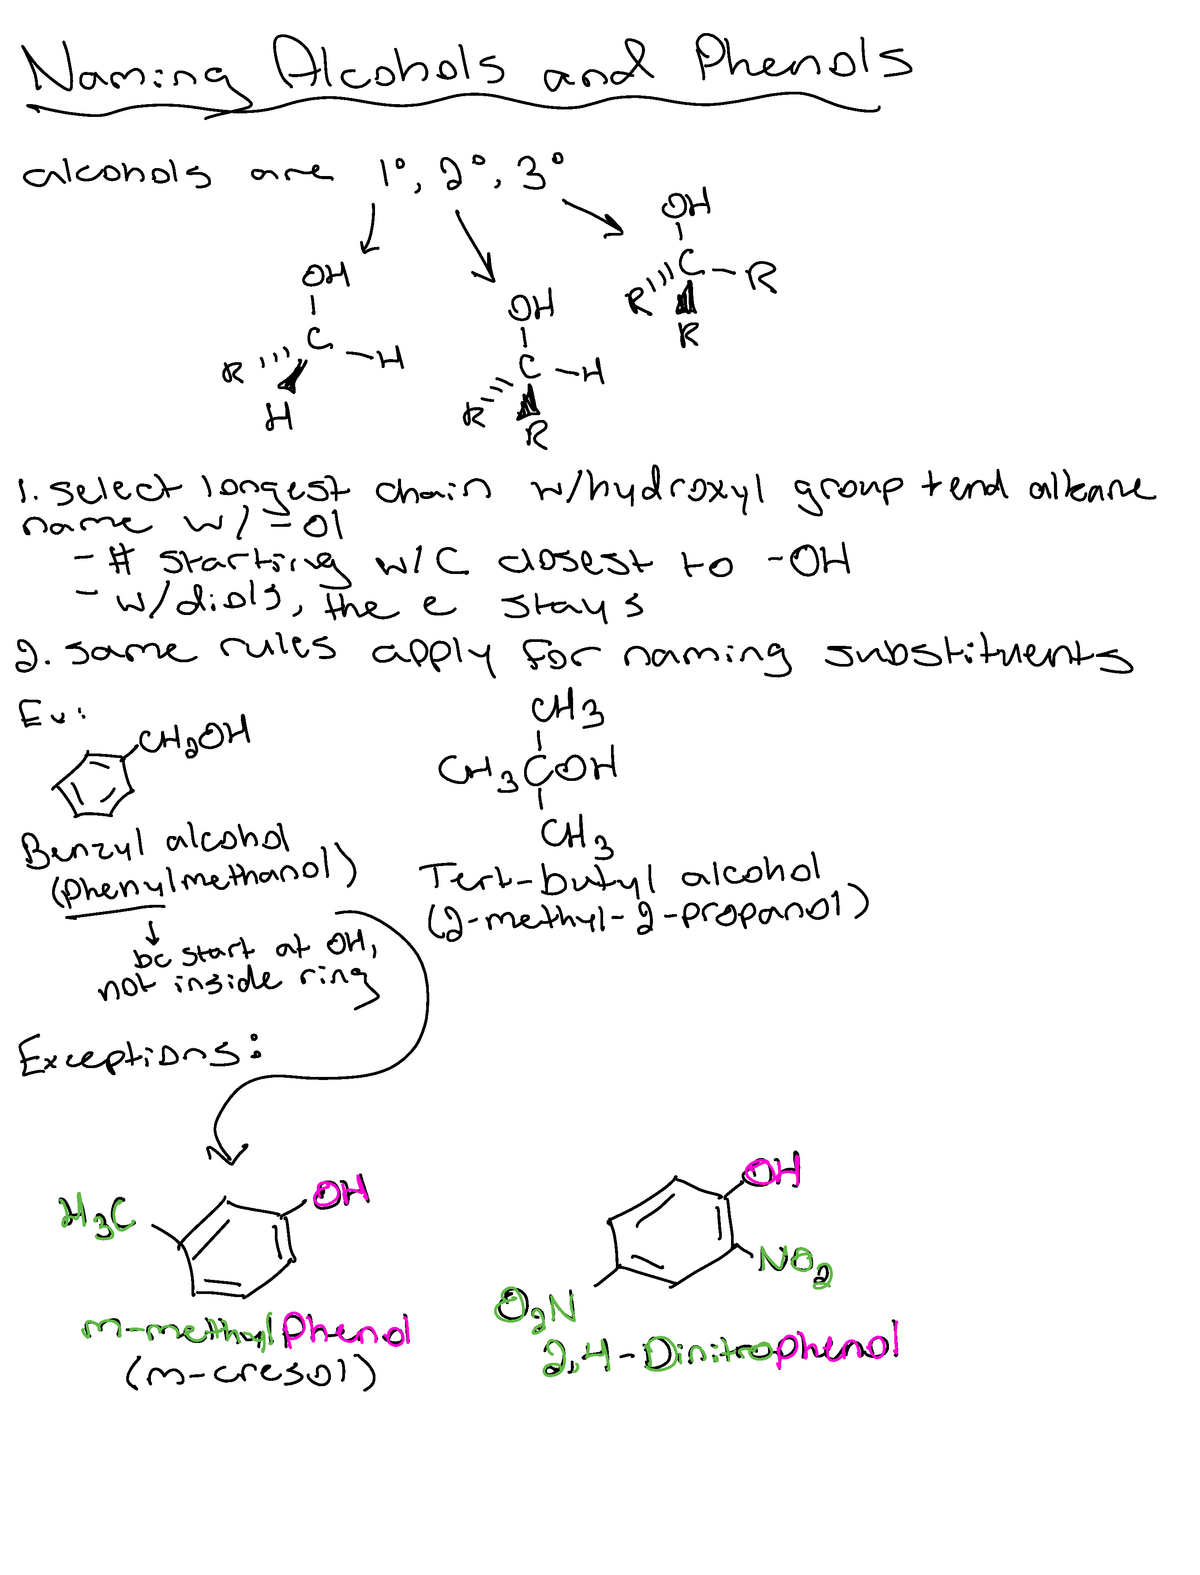 Naming Alcohols and Phenols
alcohols are 1°, 2°, 3°
OH
C
R
H
H
OH
C
R
R
H
OH
C
R
R
R
1. select longest chain w/hydroxyl group + end alkane
name w/ -ol
- # starting w/C closest to -OH
- w/diols, the e stays
2. same rules apply for naming substituents
Ex:
CH2OH
Benzyl alcohol
(phenylmethanol)
bc start at OH,
not inside ring
CH3
CH3COH
CH3
Tert-butyl alcohol
(2-methyl-2-propanol)
Exceptions:
H3C
OH
m-methylPhenol
(m-cresol)
OH
NO2
O2N
2,4-Dinitrophenol